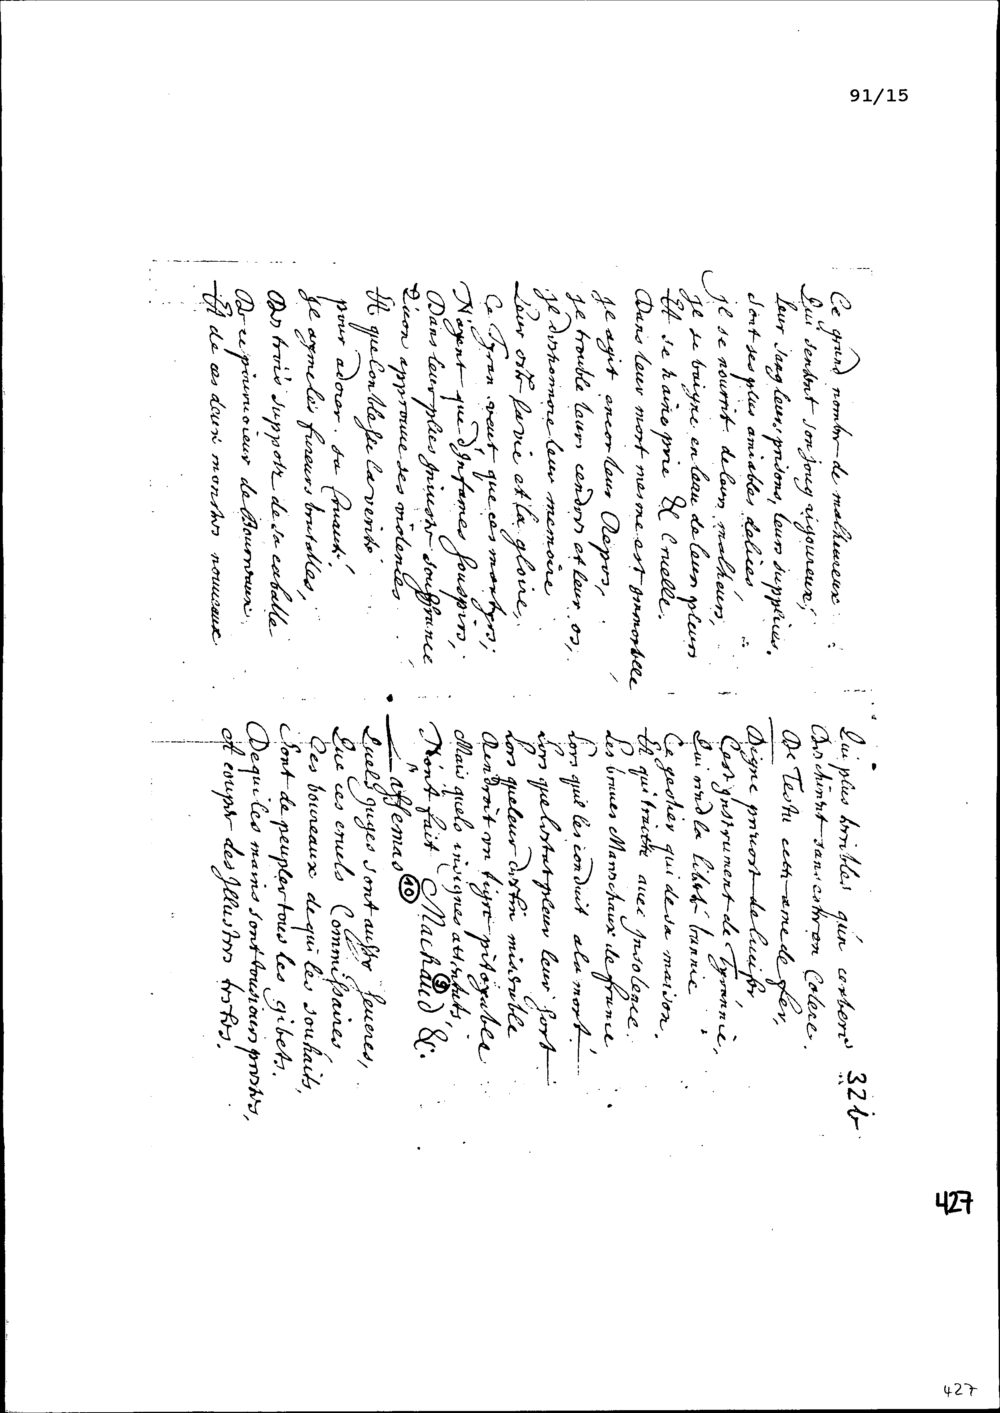 91/15
Ce grand nombre de malheureux
Qui sentent son joug rigoureux,
Leur sang leurs prisons, leurs supplices.
Sont ses plus aimables delices,
Il se nourrit de leurs malheurs,
Il se baigne en leau de leurs pleurs
Et sa haine &c Cruelle.
Dans leur mort mesme est immortelle
Il agit encor leur Repos,
Il trouble leurs cendres et leur os,
Il deshonore leur memoire
Leur oste la vie et la gloire,
Ce Tyran veut que ces martyrs,
N'ayent que d'infames souspirs,
Dans leur plus injuste souffrance
Quon approuve ses violences
Et que lon blesse la verité
pour adorer sa Cruauté.
Il arme les fureurs brutalles,
Des trois suppots de sa caballe
De ce pourvoieur de Bourreaux
Et de ces deux monstres nouveaux
32 b
Qui plus horribles qu'un cerbere
Dechirent sans estre en Colere.
De Testu cette ame de fer,
Digne prevost de lucifer
Cest instrument de Tyrannie,
Qui rend la liberté bannie
Ce geolier qui de sa maison.
Et qui traitte avec insolence.
Les braves Mareschaux de france
Lors quil les conduit a la mort
Lors que lestat pleure leur sort
Lors que leur destin miserable
Rendroit un tigre pitoyable
Mais quels insignes attentats,
N'ont fait Machaud &c.
⑨
affemas ⑩
Quels juges sont aussy severes,
Que ces cruels Commissaires
Ces boureaux de qui les souhaits,
Sont de peupler tous les gibets.
De qui les mains sont tousiours prestes,
A couper des Illustres testes.
427
427